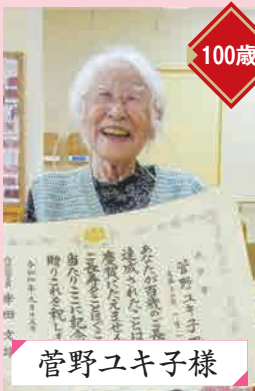 100歳
菅野ユキ子
あなたが百歳のご長
達成されたことは
慶賀にたえません
ご長寿をことほぐこ
当たりここに記念
贈りこれを祝しま
令和四年九月
内閣総理大臣 岸田文雄
菅野ユキ子様